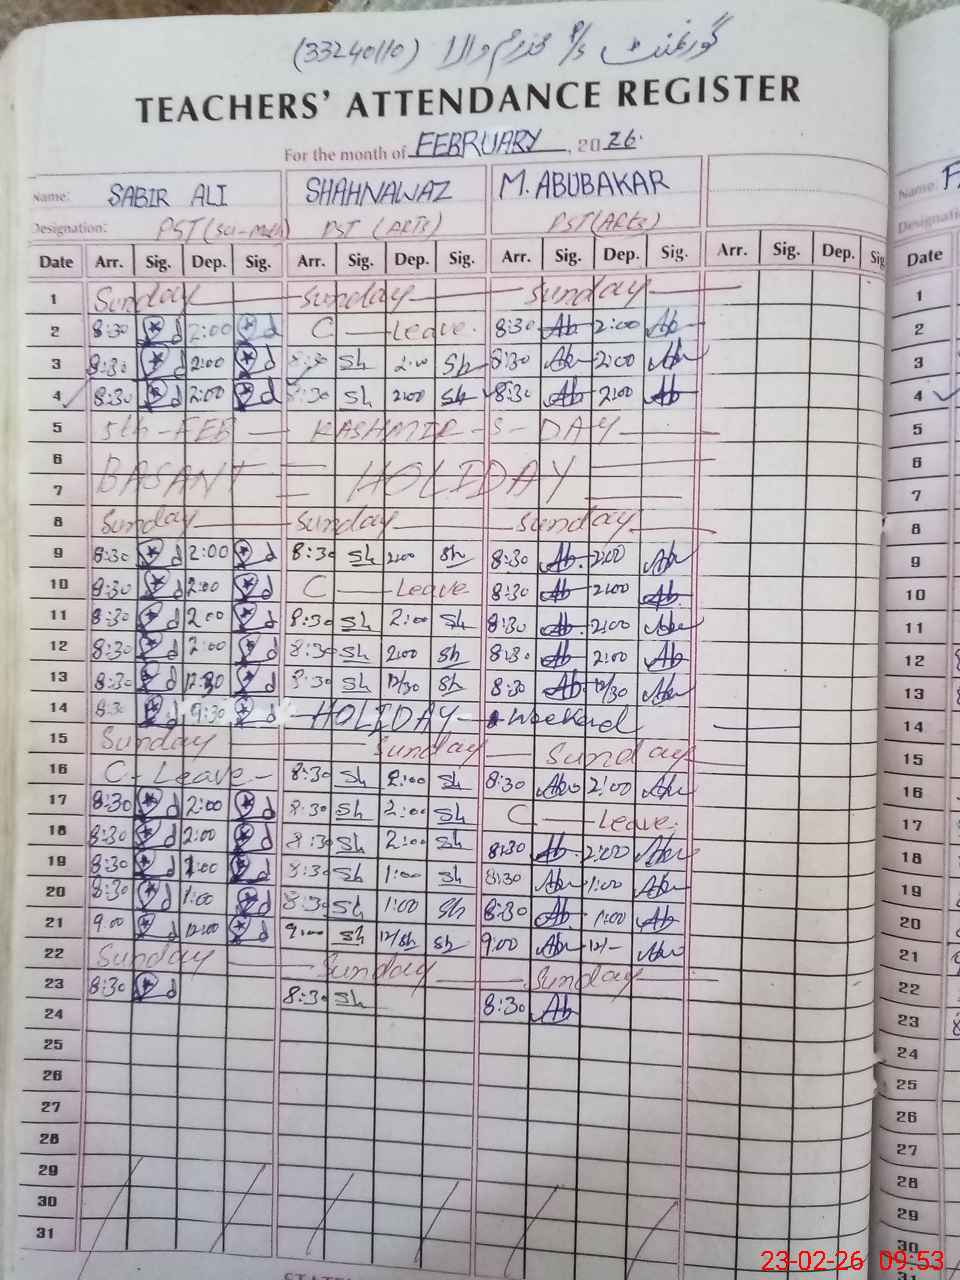 گورنمنٹ P/s والا (33240110)
TEACHERS' ATTENDANCE REGISTER
For the month of FEBRUARY, 2026.
Name: SABIR ALI SHAHNAWAZ M. ABUBAKAR
Designation: PST (Sci-math) PST (ARTS) PST (ARTS)
Date Arr. Sig. Dep. Sig. Arr. Sig. Dep. Sig. Arr. Sig. Dep. Sig. Arr. Sig. Dep. Sig
1 Sunday Sunday Sunday
2 8:30 2:00 C Leave. 8:30 Ab 2:00 Ab
3 8:30 2:00 8:30 Sh 2:00 Sh 8:30 Ab 2:00 Ab
4 8:30 2:00 8:30 Sh 2:00 Sh 8:30 Ab 2:00 Ab
5 5th-FEB KASHMIR-S-DAY
6
7 BASANT HOLIDAY
8 Sunday Sunday Sunday
9 8:30 2:00 8:30 Sh 2:00 Sh 8:30 Ab 2:00 Ab
10 8:30 2:00 C Leave 8:30 Ab 2:00 Ab
11 8:30 2:00 8:30 Sh 2:00 Sh 8:30 Ab 2:00 Ab
12 8:30 2:00 8:30 Sh 2:00 Sh 8:30 Ab 2:00 Ab
13 8:30 12:30 8:30 Sh 12/30 Sh 8:30 Ab 12/30 Ab
14 8:30 9:30 HOLIDAY - Weekend
15 Sunday Sunday Sunday
16 C-Leave- 8:30 Sh 2:00 Sh 8:30 Ab 2:00 Ab
17 8:30 2:00 8:30 Sh 2:00 Sh C Leave.
18 8:30 2:00 8:30 Sh 2:00 Sh 8:30 Ab 2:00 Ab
19 8:30 1:00 8:30 Sh 1:00 Sh 8:30 Ab 1:00 Ab
20 8:30 1:00 8:30 Sh 1:00 Sh 8:30 Ab 1:00 Ab
21 9:00 12:00 9:00 Sh Sh 9:00 Ab 12/- Ab
22 Sunday Sunday Sunday
23 8:30 8:30 Sh 8:30 Ab
24
25
26
27
28
29
30
31
Name: F
Designation
Date
1
2
3
4
5
6
7
8
9
10
11
12
13
14
15
16
17
18
19
20
21
22
23
24
25
26
27
28
29
30
31
23-02-26 09:53